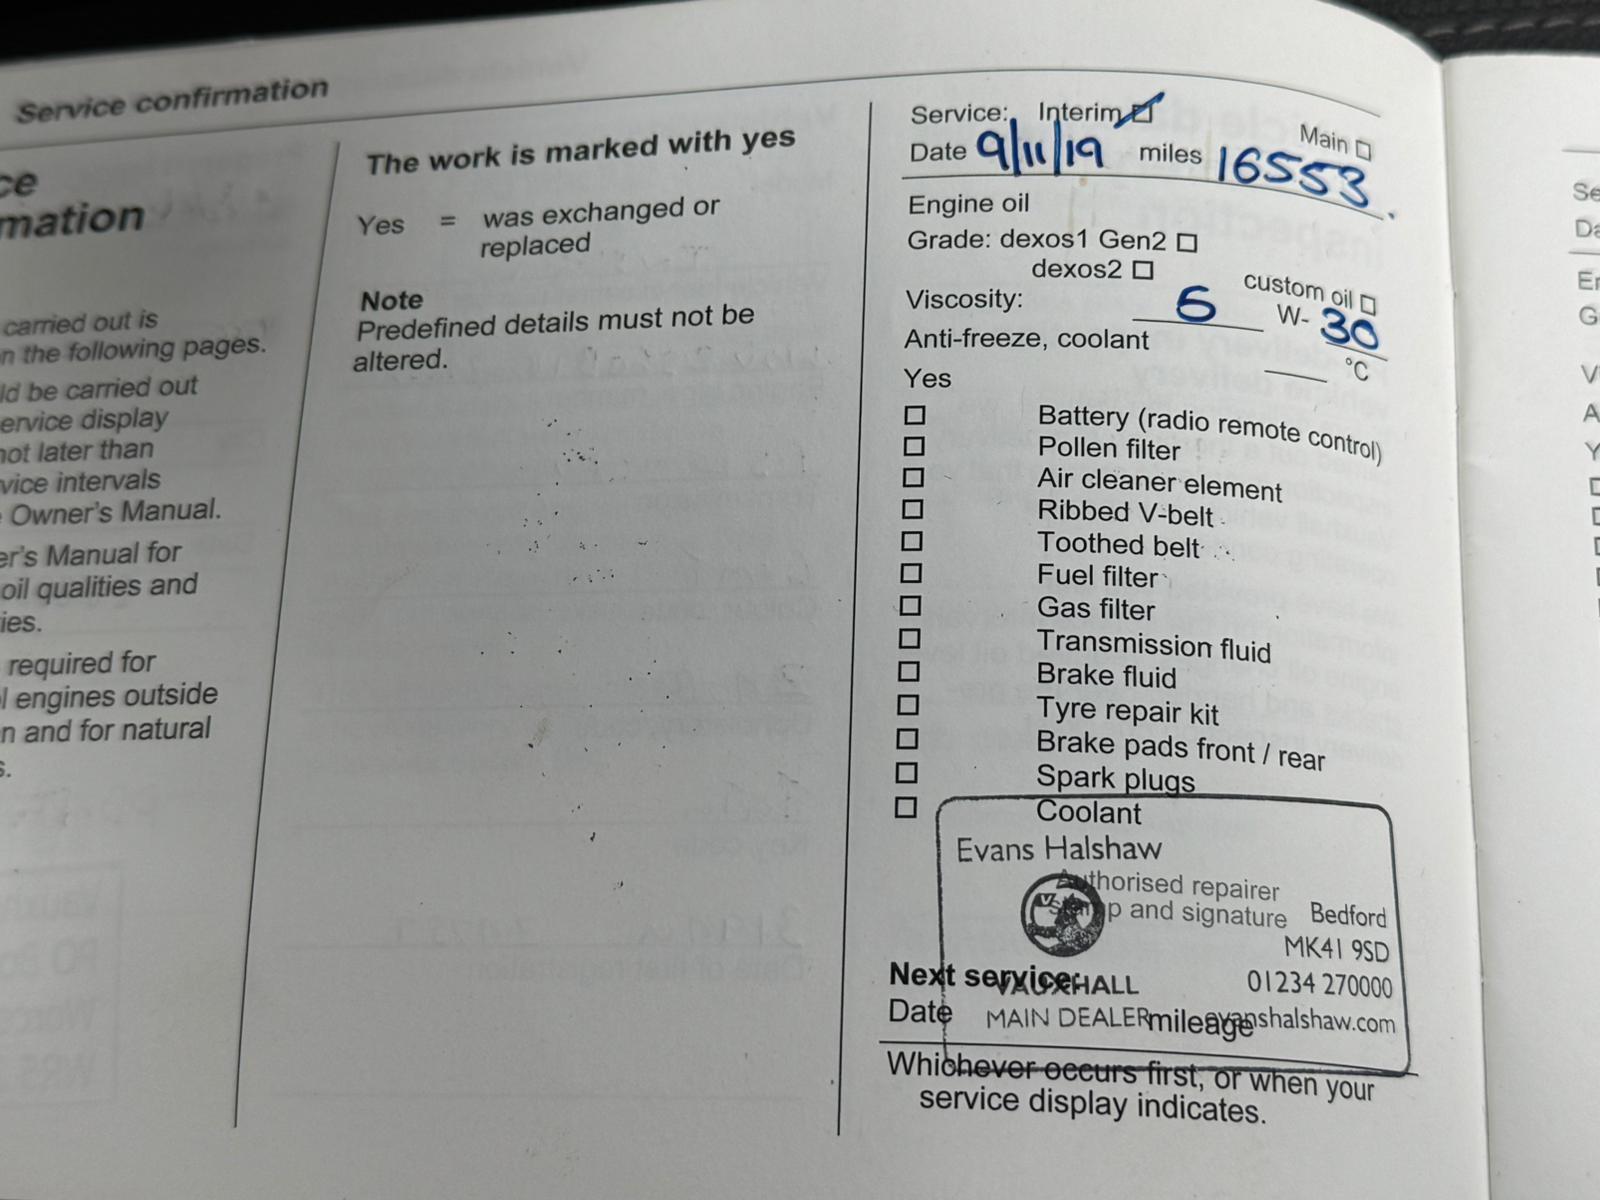 Service confirmation
ce
mation
carried out is
n the following pages.
ld be carried out
ervice display
not later than
vice intervals
Owner's Manual.
er's Manual for
oil qualities and
ies.
required for
l engines outside
n and for natural
s.
The work is marked with yes
Yes = was exchanged or
replaced
Note
Predefined details must not be
altered.
Service: Interim ☐ Main ☐
Date 9/11/19 miles 16553.
Engine oil
Grade: dexos1 Gen2 ☐
dexos2 ☐ custom oil ☐
Viscosity: 5 W-30
Anti-freeze, coolant °C
Yes
☐ Battery (radio remote control)
☐ Pollen filter
☐ Air cleaner element
☐ Ribbed V-belt
☐ Toothed belt
☐ Fuel filter
☐ Gas filter
☐ Transmission fluid
☐ Brake fluid
☐ Tyre repair kit
☐ Brake pads front / rear
☐ Spark plugs
☐ Coolant
Evans Halshaw
Authorised repairer
stamp and signature
Bedford
MK41 9SD
01234 270000
evanshalshaw.com
VAUXHALL
MAIN DEALER
Next service:
Date mileage
Whichever occurs first, or when your
service display indicates.
Se
Da
En
G
V
A
Y